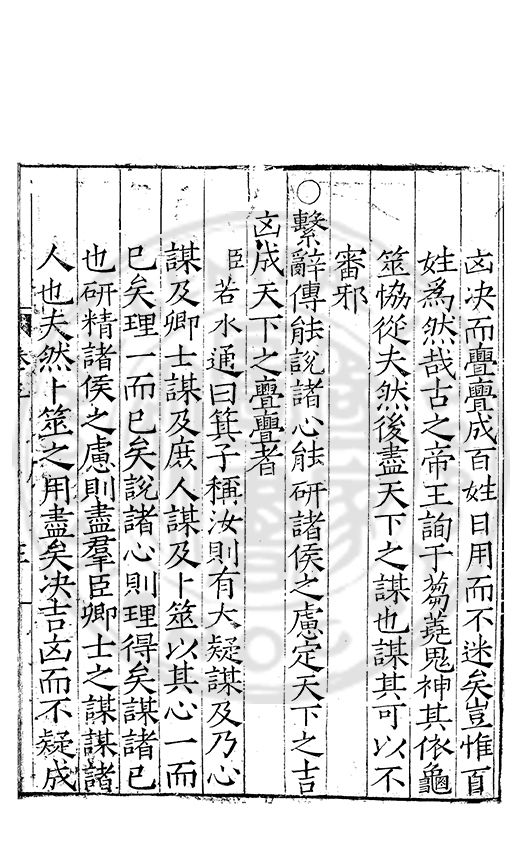 凶决而亹亹成百姓日用而不迷矣豈惟百
姓為然哉古之帝王詢于芻蕘鬼神其依龜
筮恊從夫然後盡天下之謀也謀其可以不
審邪
○繫辭傳能說諸心能研諸侯之慮定天下之吉
凶成天下之亹亹者
臣若水通曰箕子稱汝則有大疑謀及乃心
謀及卿士謀及庶人謀及卜筮以其心一而
已矣理一而已矣說諸心則理得矣謀諸已
也研精諸侯之慮則盡羣臣卿士之謀謀諸
人也夫然卜筮之用盡矣决吉凶而不疑成